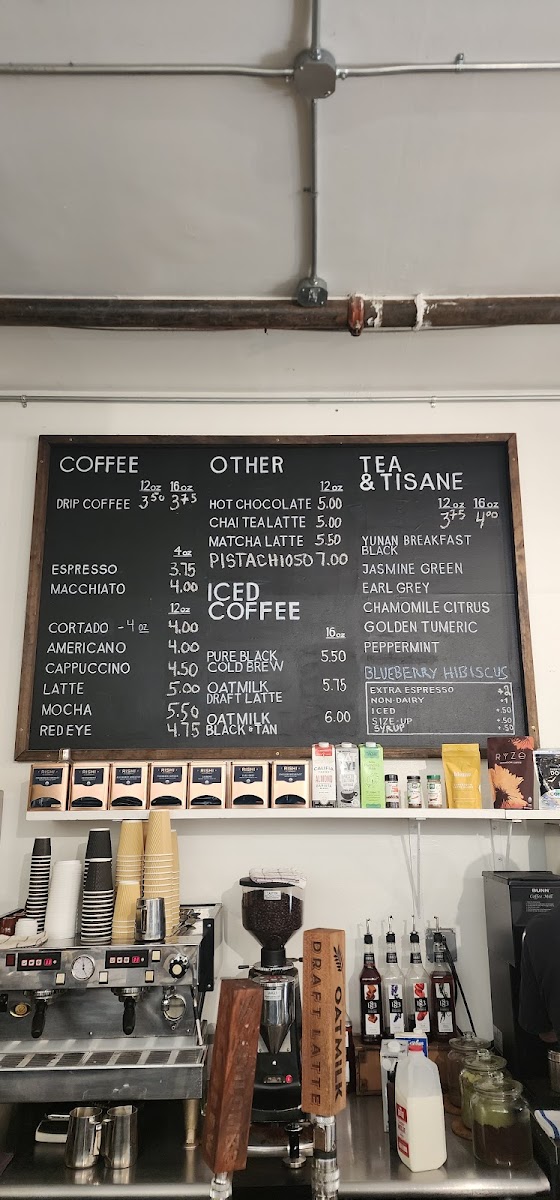 COFFEE
12oz 16oz
DRIP COFFEE 3.50 3.75
4oz
ESPRESSO 3.75
MACCHIATO 4.00
12oz
CORTADO - 4oz 4.00
AMERICANO 4.00
CAPPUCCINO 4.50
LATTE 5.00
MOCHA 5.50
RED EYE 4.75
OTHER
12oz
HOT CHOCOLATE 5.00
CHAI TEA LATTE 5.00
MATCHA LATTE 5.50
PISTACHIOSO 7.00
ICED
COFFEE
16oz
PURE BLACK 5.50
COLD BREW
OATMILK 5.75
DRAFT LATTE
OATMILK 6.00
BLACK & TAN
TEA
& TISANE
12oz 16oz
3.75 4.00
YUNAN BREAKFAST
BLACK
JASMINE GREEN
EARL GREY
CHAMOMILE CITRUS
GOLDEN TUMERIC
PEPPERMINT
BLUEBERRY HIBISCUS
EXTRA ESPRESSO +2
NON-DAIRY +1
ICED +.50
SIZE-UP +.50
SYRUP +.50
RISHI
RISHI
RISHI
RISHI
RISHI
RISHI
RISHI
CALIFIA
RYZE
BUNN
Coffee Mill
DRAFT LATTE
OATMILK